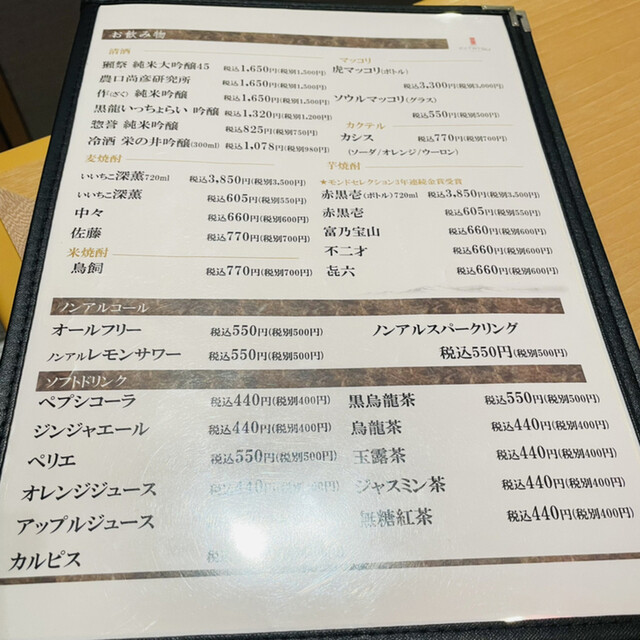 お飲み物
清酒
獺祭 純米大吟醸45 税込1,650円(税別1,500円)
農口尚彦研究所 税込1,650円(税別1,500円)
作(ざく) 純米吟醸 税込1,650円(税別1,500円)
黒龍いっちょらい 吟醸 税込1,320円(税別1,200円)
惣誉 純米吟醸 税込825円(税別750円)
冷酒 栄の井吟醸(300ml) 税込1,078円(税別980円)
麦焼酎
いいちこ深薫720ml 税込3,850円(税別3,500円)
いいちこ深薫 税込605円(税別550円)
中々 税込660円(税別600円)
佐藤 税込770円(税別700円)
米焼酎
鳥飼 税込770円(税別700円)
マッコリ
虎マッコリ(ボトル)
税込3,300円(税別3,000円)
ソウルマッコリ(グラス)
税込550円(税別500円)
カクテル
カシス 税込770円(税別700円)
(ソーダ/オレンジ/ウーロン)
芋焼酎
★モンドセレクション3年連続金賞受賞
赤黒壱(ボトル)720ml 税込3,850円(税別3,500円)
赤黒壱 税込605円(税別550円)
富乃宝山 税込660円(税別600円)
不二才 税込660円(税別600円)
㐂六 税込660円(税別600円)
ノンアルコール
オールフリー 税込550円(税別500円)
ノンアルレモンサワー 税込550円(税別500円)
ノンアルスパークリング
税込550円(税別500円)
ソフトドリンク
ペプシコーラ 税込440円(税別400円)
ジンジャエール 税込440円(税別400円)
ペリエ 税込550円(税別500円)
オレンジジュース
アップルジュース
カルピス
黒烏龍茶 税込550円(税別500円)
烏龍茶 税込440円(税別400円)
玉露茶 税込440円(税別400円)
ジャスミン茶 税込440円(税別400円)
無糖紅茶 税込440円(税別400円)